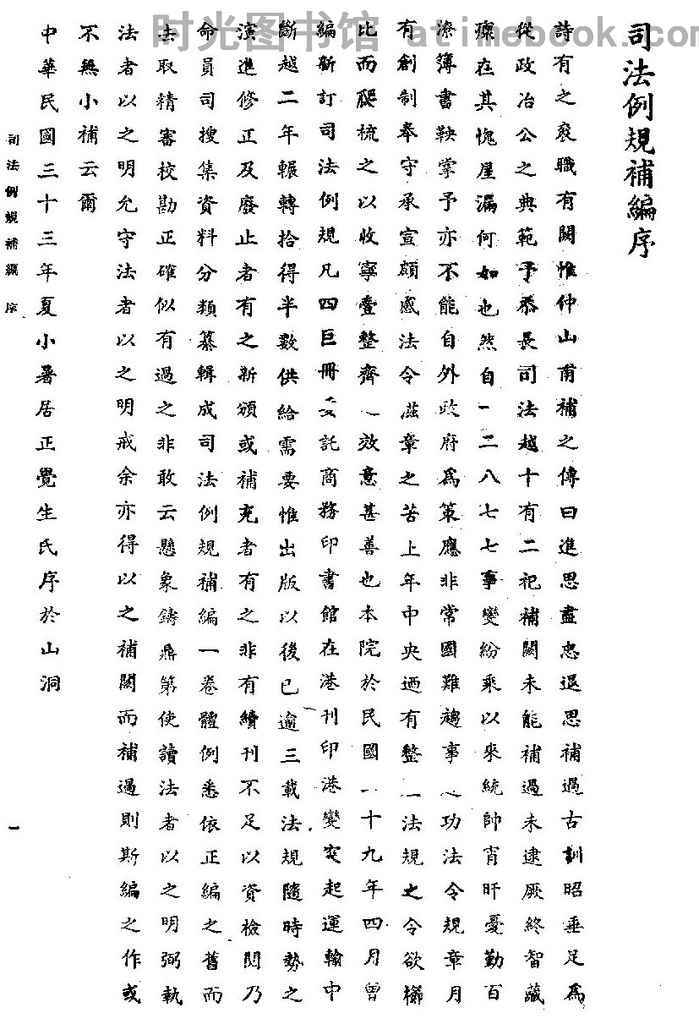 时光图书馆 atimebook.com
司法例規補編序
詩有之袞職有闕惟仲山甫補之傳曰進思盡忠退思補過古訓昭垂足為
從政冶公之典範予忝長司法越十有二祀補闕未能補過未逮厥終智藏
瘝在其愧屋漏何如也然自一二八七七事變紛乘以來統帥宵旰憂勤百
僚簿書鞅掌予亦不能自外政府為策應非常國難趨事之功法令規章月
有創制奉守承宣頗感法令滋章之苦上年中央迺有整一法規之令欲櫛
比而爬梳之以收寧壹整齊之效意甚善也本院於民國二十九年四月曾
編新訂司法例規凡四巨冊委託商務印書館在港刊印港變突起運輸中
斷越二年輾轉拾得半數供給需要惟出版以後已逾三載法規隨時勢之
演進修正及廢止者有之新頒或補充者有之非有續刊不足以資檢閱乃
命員司搜集資料分類纂輯成司法例規補編一卷體例悉依正編之舊而
去取精審校勘正確似有過之非敢云懸象鑄鼎第使讀法者以之明弼執
法者以之明允守法者以之明戒余亦得以之補闕而補過則斯編之作或
不無小補云爾
中華民國三十三年夏小暑居正覺生氏序於山洞
司法例規補編 序
一